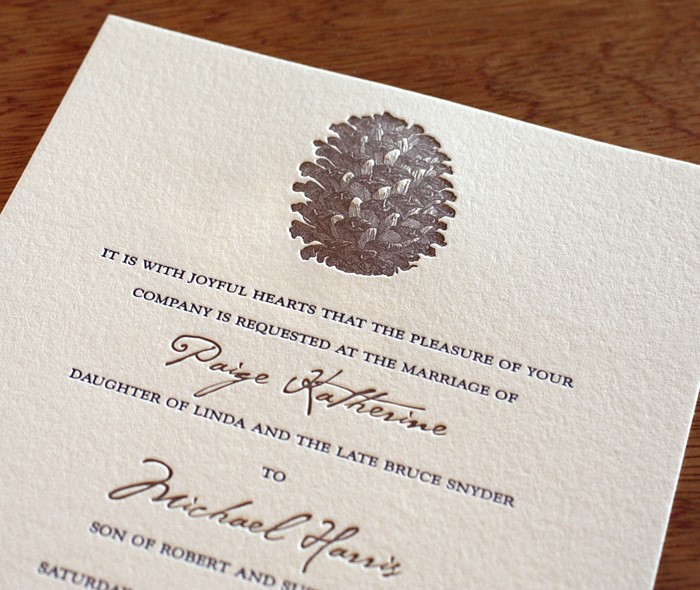 IT IS WITH JOYFUL HEARTS THAT THE PLEASURE OF YOUR
COMPANY IS REQUESTED AT THE MARRIAGE OF
Paige Katherine
DAUGHTER OF LINDA AND THE LATE BRUCE SNYDER
TO
Michael Harris
SON OF ROBERT AND
SATURDAY